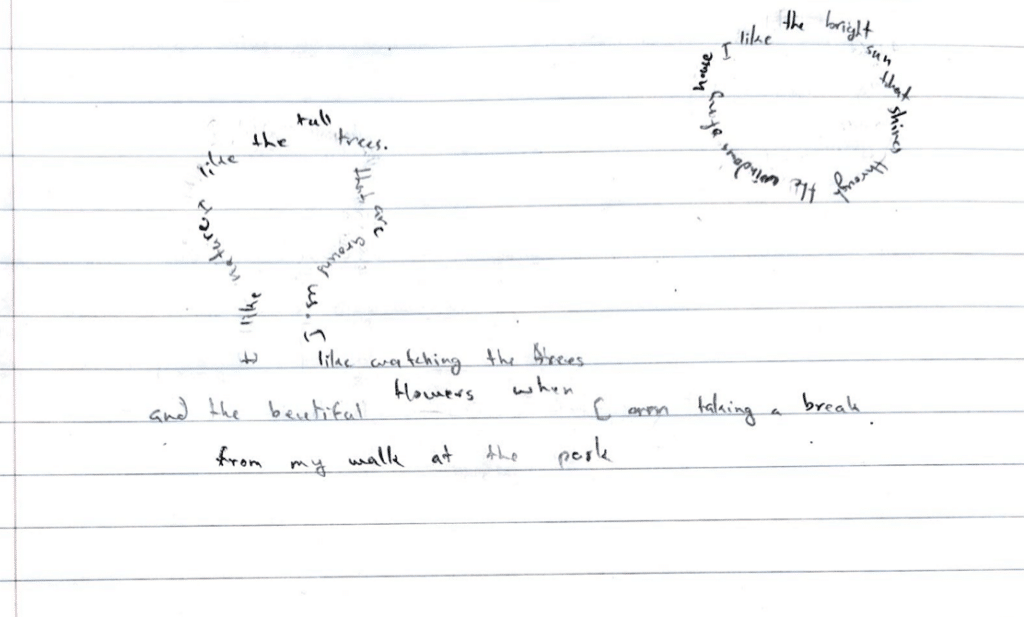 I like the bright sun that shines through the windows of my house
I like nature I like the tall trees. that are around us. I
like watching the trees
and the beutiful flowers when I am taking a break.
from my walk at the park